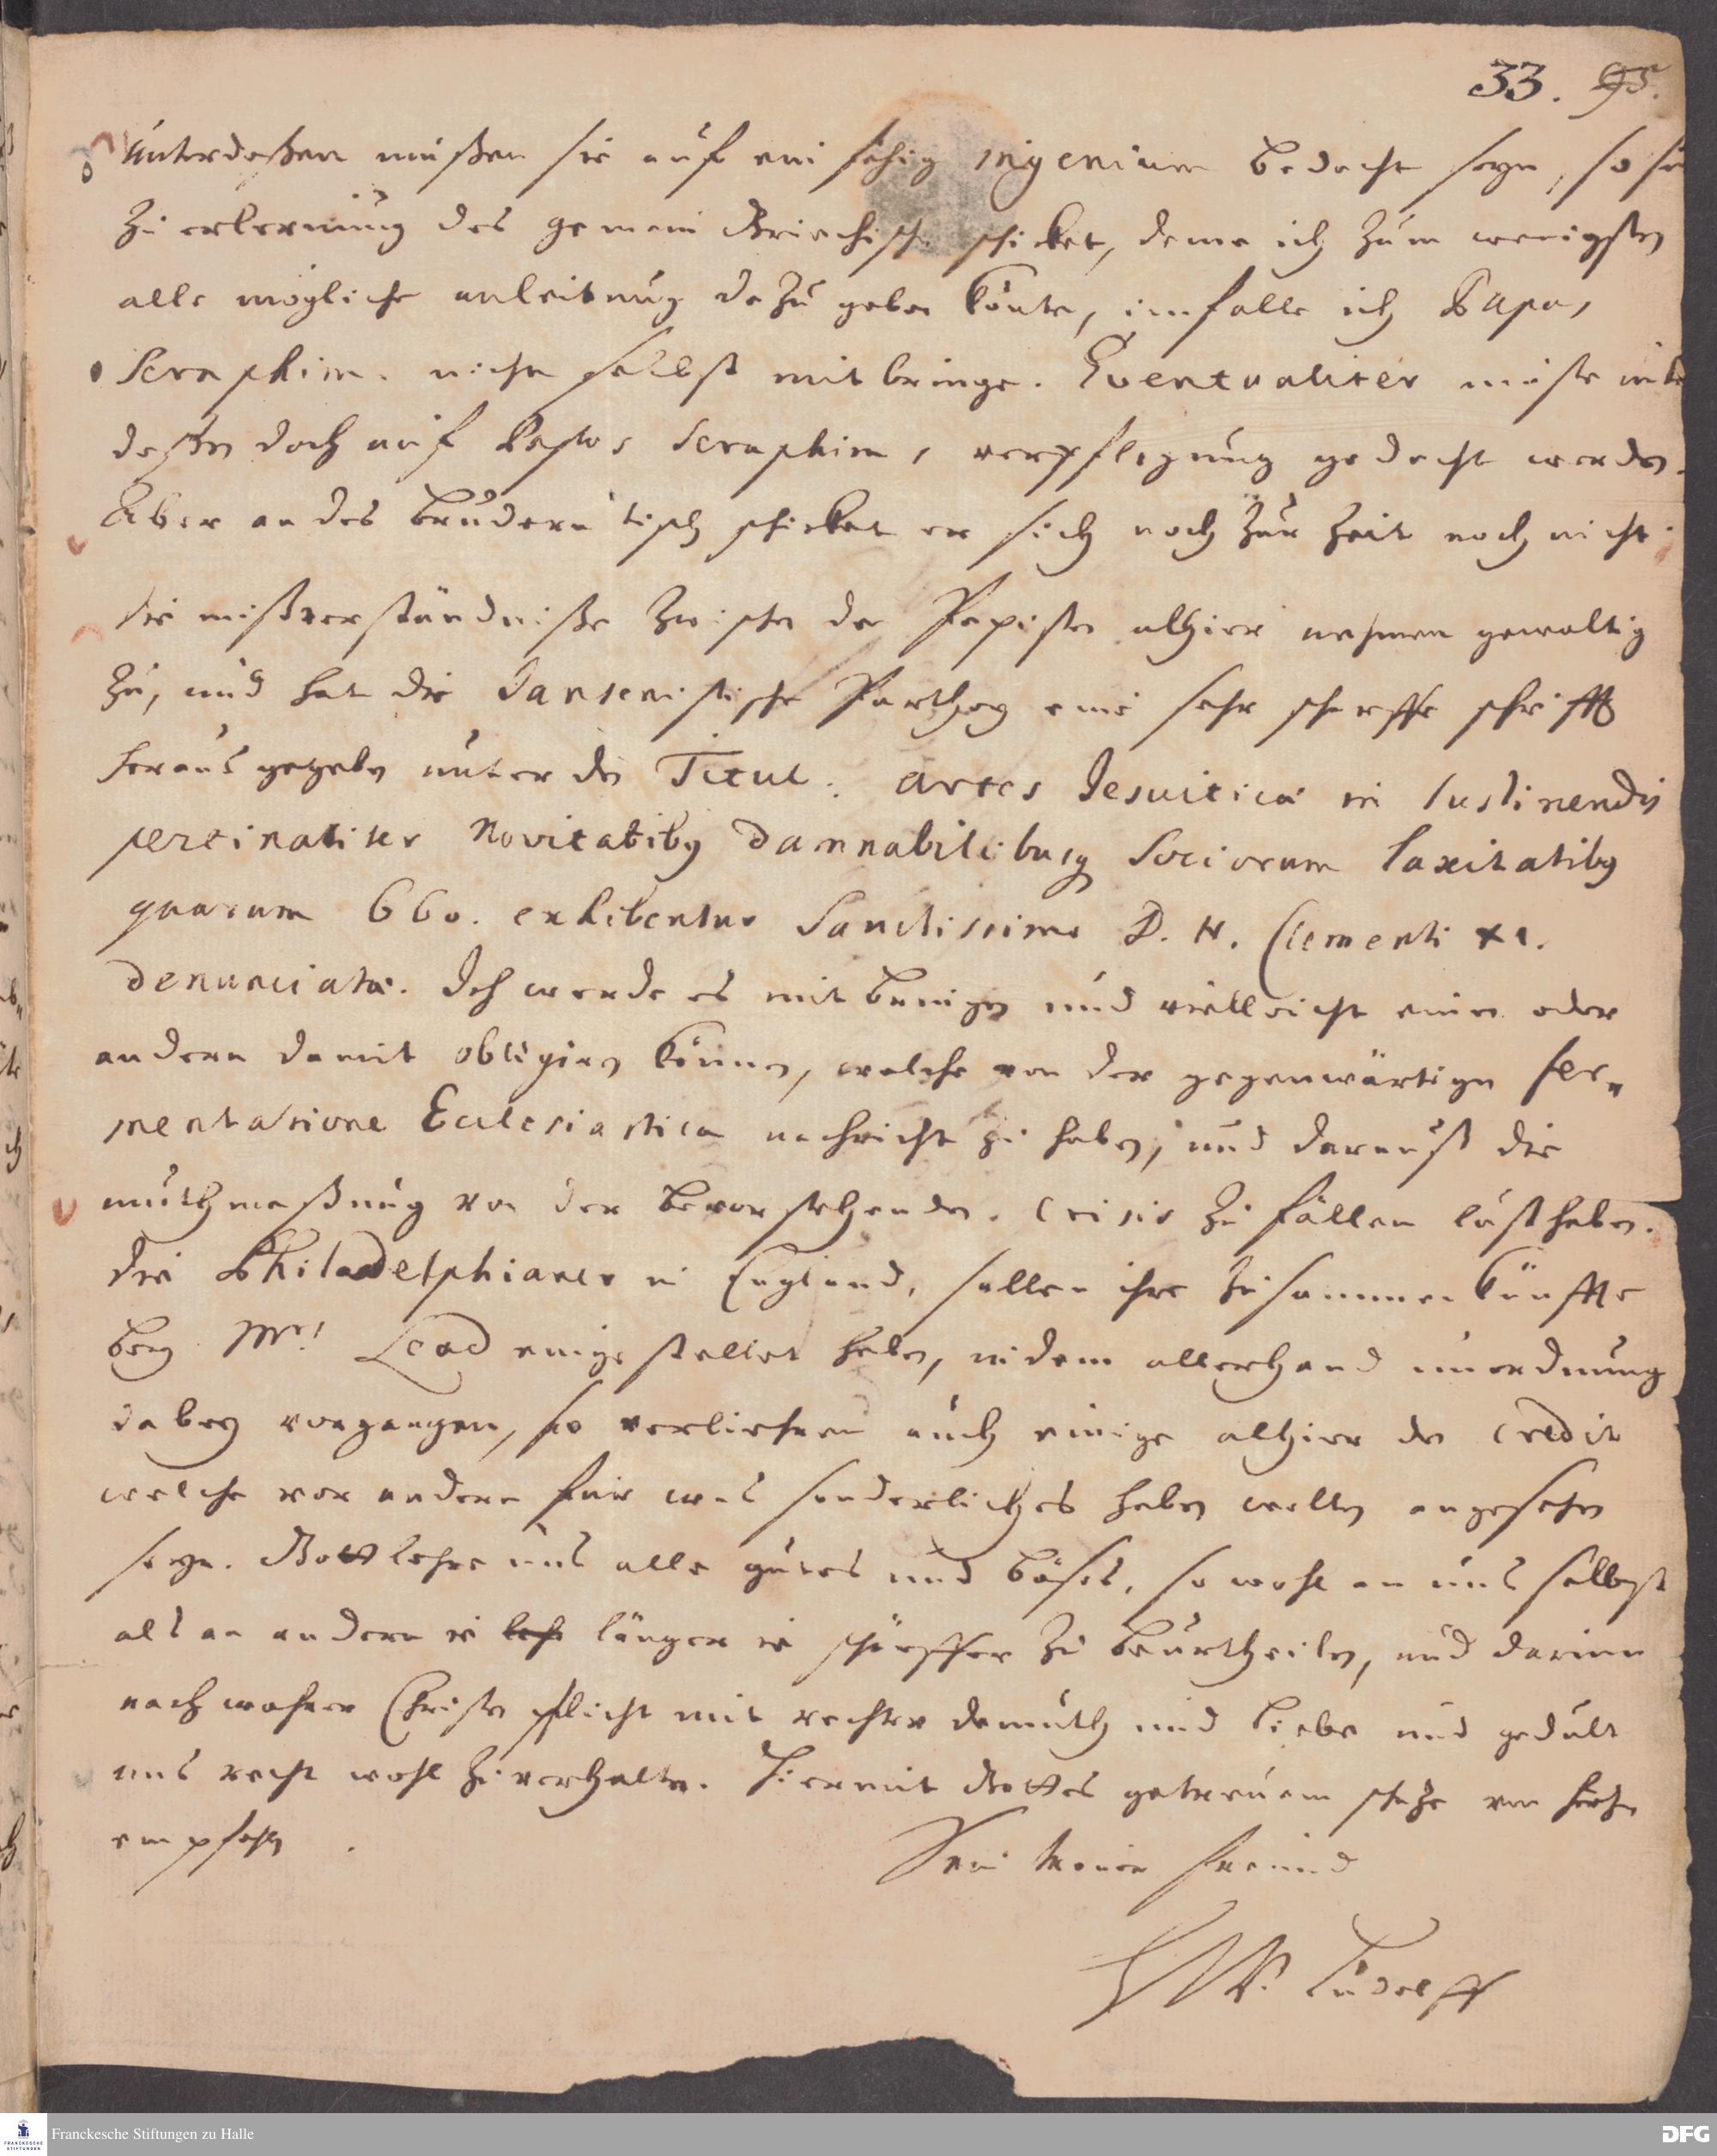 33. 95.
Unterdeßen müßen sie auf ein fähig ingenium bedacht seyn, so sich
zu erlernung des gemein Griechische schicket, deme ich zum wenigsten
alle mögliche anleitung dazu geben könte, imfalle ich Papas
Seraphim. nicht selbst mitbringe. Eventualiter müste inde
deßen doch auf Papas Seraphim, verpflegung gedacht werden.
Aber an des brudern tisch schicket er sich noch zur Zeit noch nicht.
die mißverständniße zwischen den Papisten alhier nehmen gewaltig
zu, und hat die Jansenistische Parthey eine sehr scharffe schrifft
heraus gegeben unter den Titul: Artes Jesuiticæ in sustinendis
pertinaciter Novitatibg Damnabilibusq Sociorum laxitatibg
quarum 660. exhibentur Sanctissimo D. N. Clementi XI.
denunciatæ. Ich werde es mit bringen und vielleicht einen oder
andern damit obligiren können, welche von der gegenwärtigen fer„
mentatione Ecclesiastica nachricht zu haben, und darauß die
muthmaßung von der bevorstehenden. Crisis zu fällen lust haben.
die Philadelphianer in England, sollen ihre zusammenkünffte
bey Mrs Lead eingestellet haben, indem allerhand unordnung
dabey vorgangen, so verliehren auch einige alhier den credit
welche vor andern für was sonderliches haben wollen angesehen
seyn. Gott lehre uns alle gutes und böses, so wohl an uns selbst
als an andern ie länger ie schärffer zu beurtheilen, und darinn
nach wahrer Christen pflicht mit rechter demuth und liebe und gedult
uns recht wohl zu verhalten. hiermit Gottes getreuem schuze von herzen
empfehle.
Sein treuer freund
HWLudolff
Franckesche Stiftungen zu Halle
FRANCKESCHE STIFTUNGEN
DFG